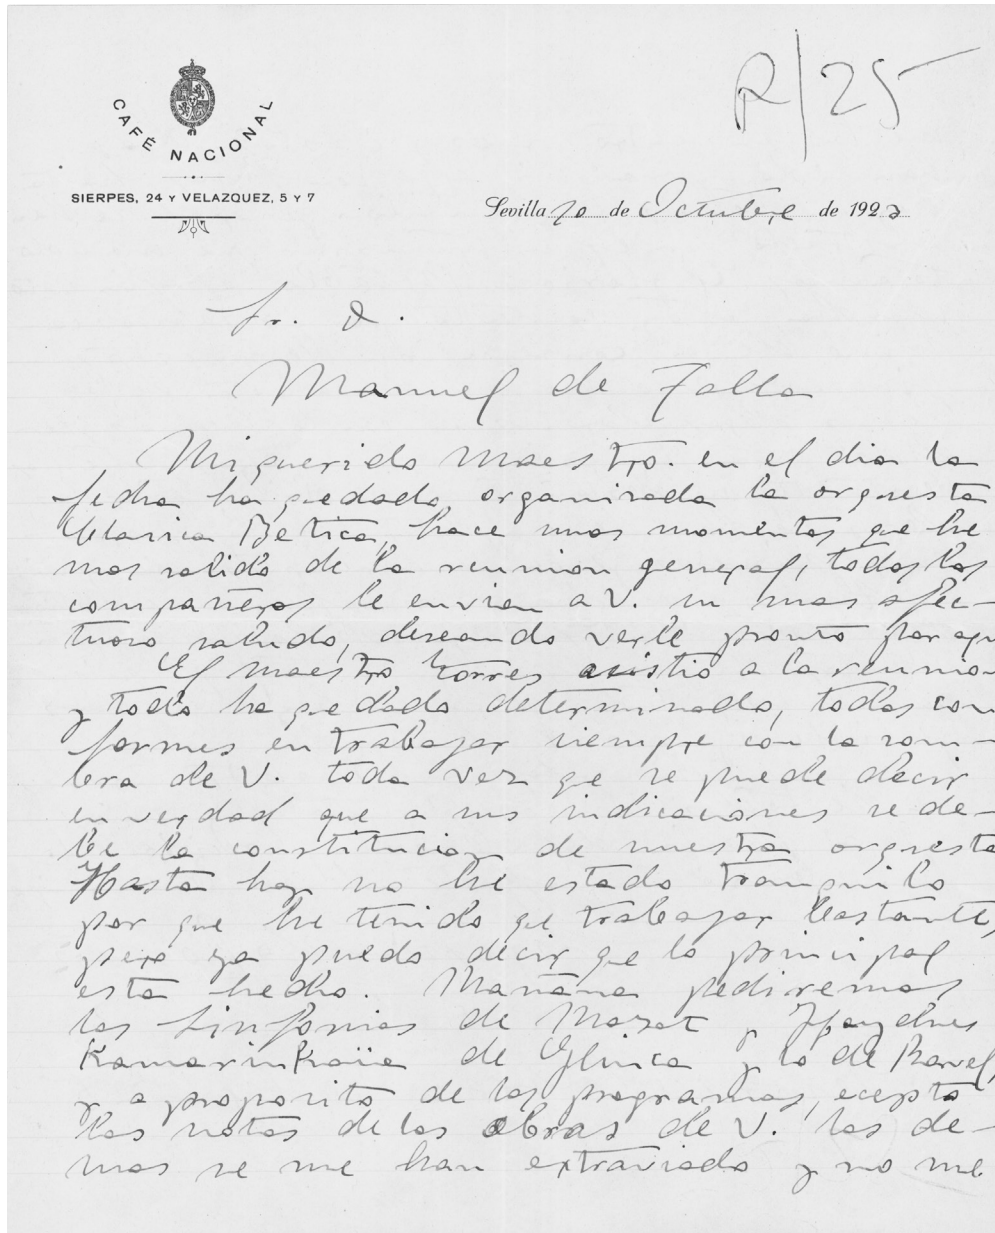 R/25
CAFÉ NACIONAL
SIERPES, 24 Y VELAZQUEZ, 5 Y 7
Sevilla 10 de Octubre de 1923
Sr. D.
Manuel de Falla
Mi querido Maestro. en el dia la
fecha ha quedado organizada la orquesta
Clasica Betica, hace unos momentos que he
mos salido de la reunion general, todos los
compañeros le envian a V. su mas afec-
tuoso saludo, deseando verle pronto por aqui
El maestro Torres asistio a la reunion
y todo ha quedado determinado, todos con
formes en trabajar siempre con la som-
bra de V. toda vez que se puede decir
en verdad que a sus indicaciones se de-
be la constitucion de nuestra orquesta
Hasta hoy no he estado tranquilo
por que he tenido que trabajar bastante,
pero ya puedo decir que lo principal
esta hecho. Mañana pediremos
las Sinfonias de Mozat y Haydnes
Kamarinkaïa de Glinca y lo de Ravel,
y a proposito de los programas, ecepto
las notas de las obras de V. las de-
mas se me han extraviado y no me